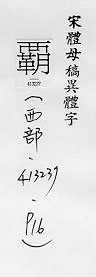 宋體母稿異體字
覇
413239
(西部.413239.P16)